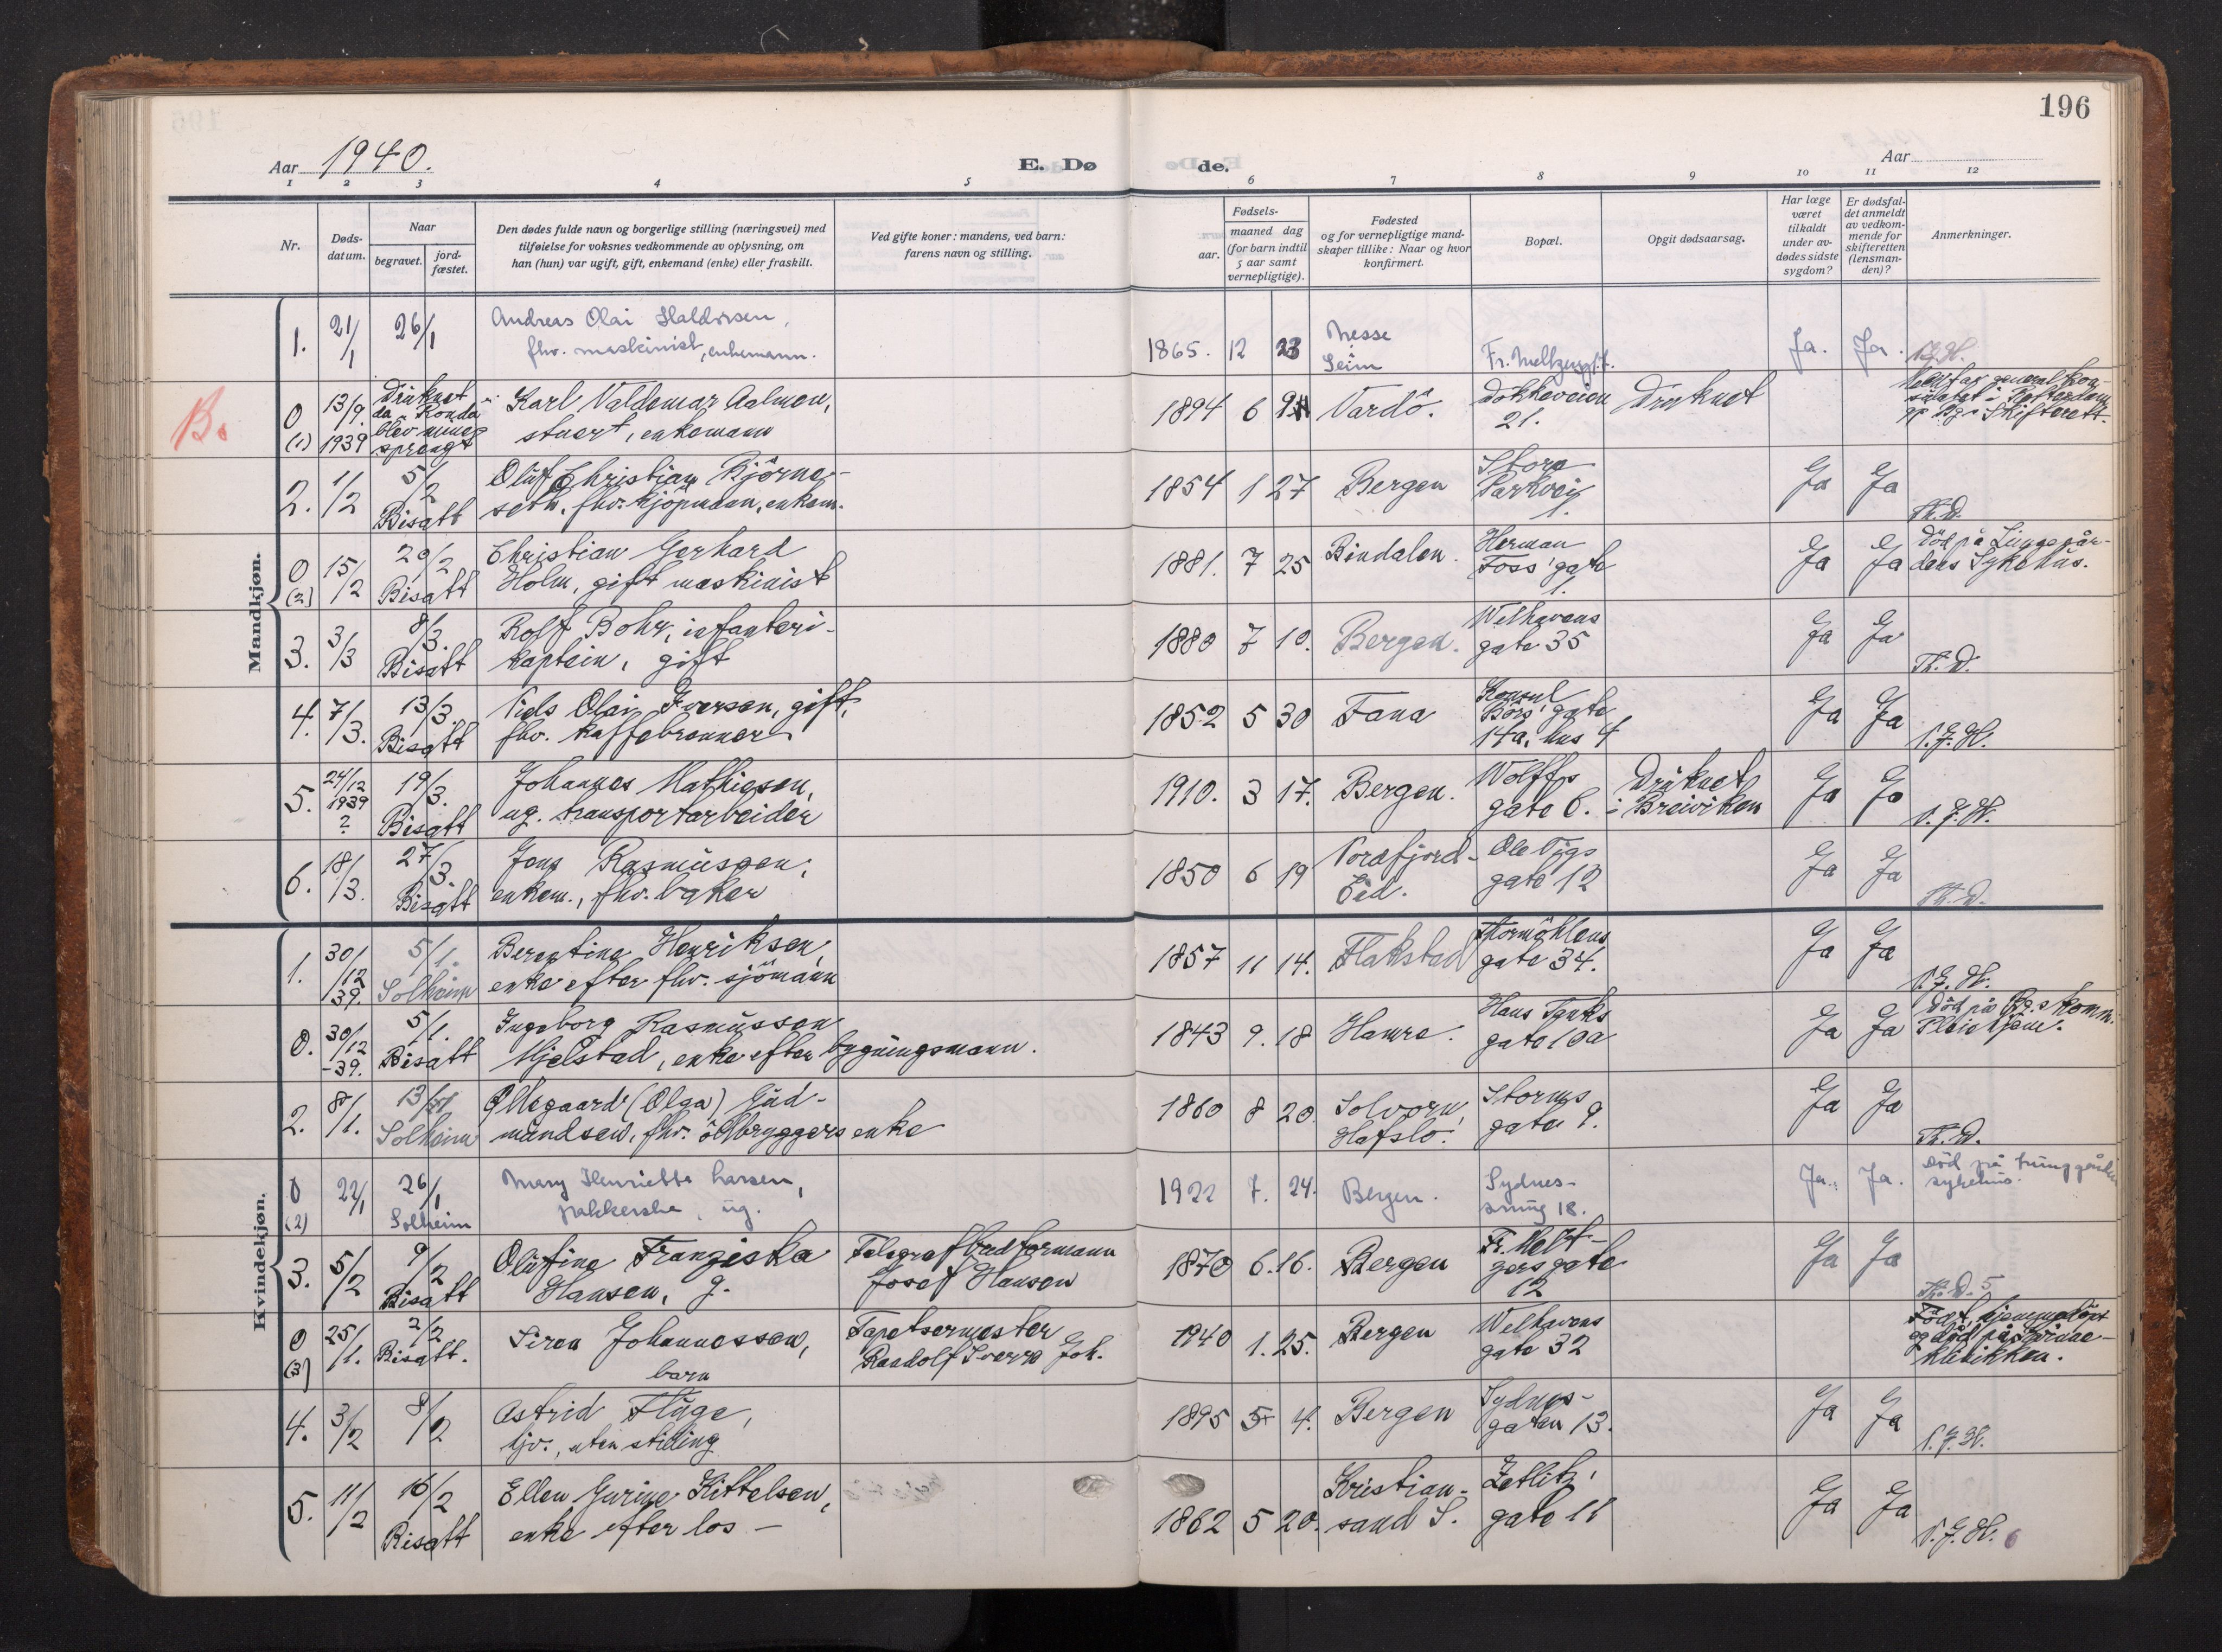 196
Aar 1940.
E. Døde.
Aar
1 2 3 4 5 6 7 8 9 10 11 12
Nr.
Døds-
datum.
Naar
begravet.
jord-
fæstet.
Den dødes fulde navn og borgerlige stilling (næringsvei) med
tilføielse for voksnes vedkommende av oplysning, om
han (hun) var ugift, gift, enkemand (enke) eller fraskilt.
Ved gifte koner: mandens, ved barn:
farens navn og stilling.
Fødsels-
aar.
maaned dag
(for barn indtil
5 aar samt
vernepligtige).
Fødested
og for vernepligtige mand-
skaper tillike: Naar og hvor
konfirmert.
Bopæl.
Opgit dødsaarsag.
Har læge
været
tilkaldt
under av-
dødes sidste
sygdom?
Er dødsfal-
det anmeldt
av vedkom-
mende for
skifteretten
(lensman-
den)?
Anmerkninger.
Mandkjøn.
1. 21/1 26/1 Andreas Olai Haldorsen,
fhv. maskinist, enkemann.
1865. 12 23 Messe
Seim
Ja. Ja.
B.
0 (1) 13/9. 1939 Druknet
da Ronda
blev mine
sprengt
Karl Valdemar Aalmen,
stuert, enkemann
1894 6 Vardö. Dokkeveien
21.
Druknet
2. 1/2 5/2 Bisatt Oluf Christian Björne-
seth, fhv. kjöpmann, enkem.
1854 1 27 Bergen Store
Parkvei
1.
Ja Ja Th. D.
0 (2) 15/2 20/2 Bisatt Christian Gerhard
Holm, gift maskinist
1881. 7 25 Bindalen. Herman
Foss' gate
1.
Ja Ja Död på Lungegår-
dens Sykehus.
3. 3/3 8/3. Bisatt Rolf Bohr, infanteri-
kaptein, gift
1880 7 10. Bergen. Welhavens
gate 35
Ja Ja Th. D.
4. 7/3. 13/3. Bisatt Nels Olai Iversen, gift,
fhv. kaffebrenner
1852 5 30 Fana Konsul
Börs' gate
14a, hus 4
Ja Ja
5. 24/12 1939 ? 19/3. Bisatt Johannes Mathiesen,
ug. transportarbeider
1910. 3 17. Bergen. Wolffs
gate 6.
Druknet
i Breiviken
Ja Ja
6. 18/3. 27/3. Bisatt Jens Rasmussen,
enkem., fhv. baker
1850 6 19 Nordfjord-
Eid.
Ole Vigs
gate 12
Ja Ja Th. D.
Kvindekjøn.
1. 30/12 39. 5/1. Solheim Berentine Henriksen,
enke efter fhv. sjömann
1857 11 14. Flakstad Thormöhlens
gate 34.
Ja Ja
0. 30/12 -39. 5/1. Bisatt Ingeborg Rasmussen
Mjelstad, enke efter bygningsmann.
1843 9. 18 Hamre. Hans Tanks
gate 10a
Ja Ja Död på Bg.s komm.
Pleiehjem.
2. 8/1. 13/1 Solheim Ollegaard (Olga) Gud-
mundsen, fhv. ölbryggers enke
1860 8 20. Solvorn,
Hafslo.
Storms
gate 9.
Ja Ja Th. D.
0 (2) 22/1 26/1 Solheim Mary Henriette Larsen,
pakkerske, ug.
1922 7. 24. Bergen. Sydnes-
smug 18.
Ja. Ja. Död på Lunggårds
sykehus.
3. 5/2 9/2 Bisatt Olufine Franziska
Hansen, g.
Telegrafbudformann
Josef Hansen
1870 6. 16. Bergen Fr. Melt-
zers gate
12
Ja Ja Th. D. 5
0 (3) 25/1. 2/2 Bisatt. Siren Johannessen,
barn
Tapetsermester
Randolf Sverre Joh.
1940 1. 25. Bergen Welhavens
gate 32
Födt, hjemmedöpt
og död på Kvinne-
klinikken.
4. 3/2 8/2 Astrid Flage,
hjv., uten stilling
1895 5 4. Bergen Sydnes-
gaten 13.
Ja Ja
5. 11/2 16/2 Bisatt Ellen Gurine Kittelsen,
enke efter los -
1862 5 20. Kristian-
sand S.
Zetlitz'
gate 11
Ja Ja 6